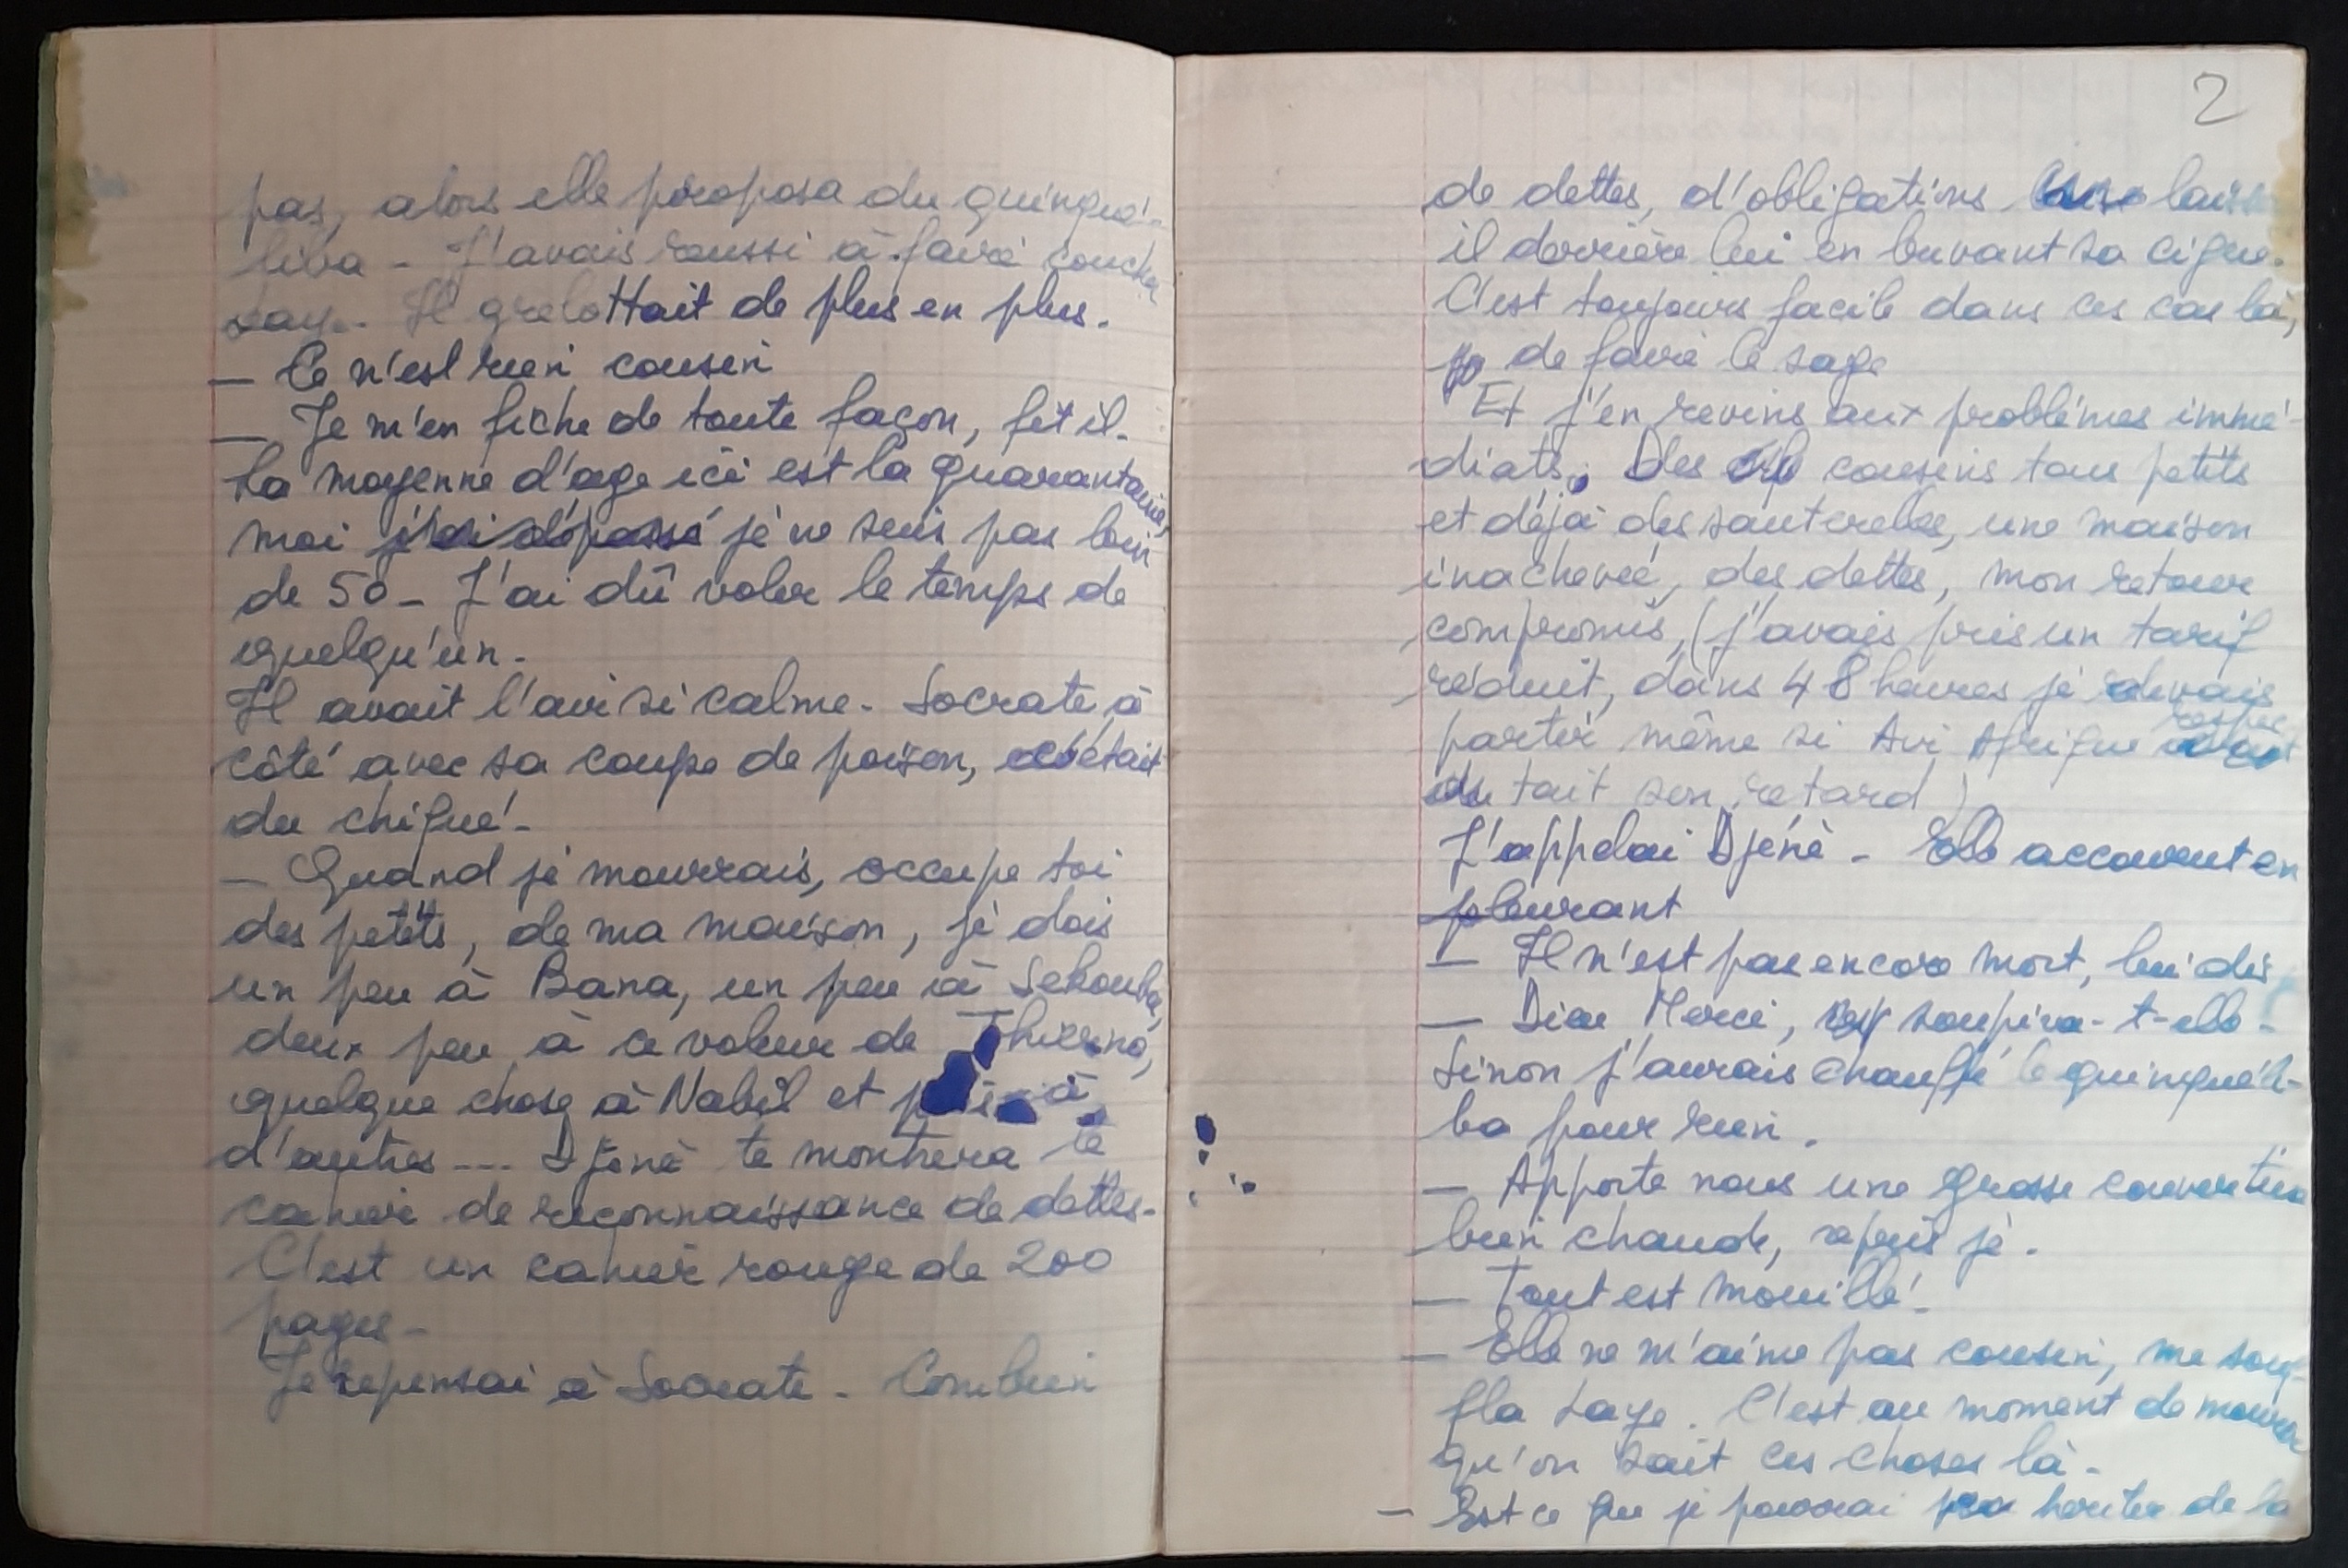 pas, alors elle proposa du quinqué-
liba - J'avais reussi à faire coucher
Laye - Il grelottait de plus en plus.
— Ce n'est rien cousin
— Je m'en fiche de toute façon, fit il -
La moyenne d'age ici est la quarantaine,
moi j'ai dépassé je ne suis pas loin
de 50 - J'ai dû voler le temps de
quelqu'un -
Il avait l'air si calme - Socrate à
côté avec sa coupe de poison, c'était
du chiqué -
— Quand je mourrais, occupe toi
des petits, de ma maison, je dois
un peu à Bana, un peu à Sekouba,
deux peu à ce voleur de Thierno,
quelque chose à Nabil et puis à
d'autres --- Djénè te montrera le
cahier de reconnaissance de dettes -
C'est un cahier rouge de 200
pages -
Je repensai à Socrate - Combien
2
de dettes, d'obligations laisse
il derrière lui en buvant sa cigue.
C'est toujours facile dans ces cas là,
de faire le sage
Et j'en revins aux problémes immé-
diats. Des cousins tous petits
et déjà des sauterelles, une maison
inachevée, des dettes, mon retour
compromis, (j'avais pris un tarif
réduit, dans 48 heures je devais
partir même si Air Afrique respec
tait son retard)
J'appelai Djénè - Elle accourut en
pleurant
— Il n'est pas encore mort, lui dis
— Dieu Merci, soupira-t-elle -
Sinon j'aurais chauffé le quinquéli-
ba pour rien.
— Apporte nous une grosse couverture
bien chaude, repris je.
— Tout est mouillé -
— Elle ne m'aime pas cousin, me souf-
fla Laye. C'est au moment de mourir
qu'on sait ces choses là -
— Est ce que je pourrai heriter de la